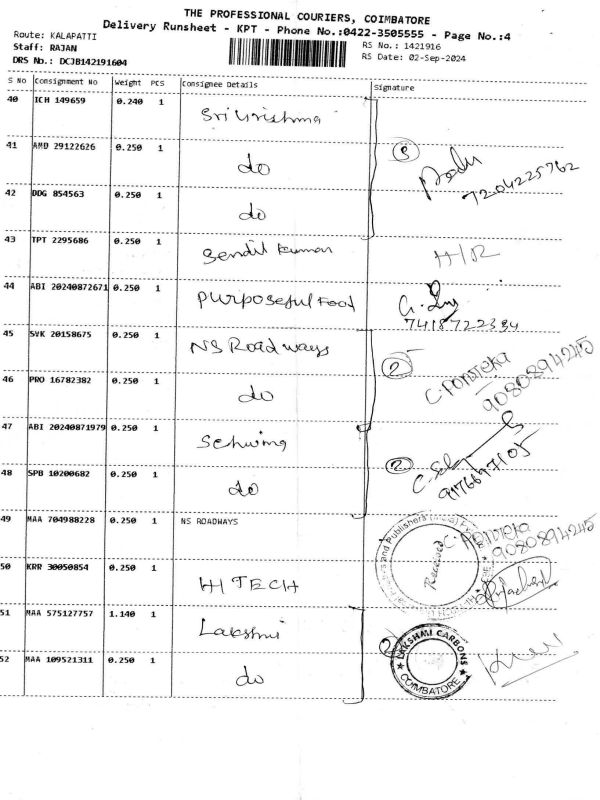 THE PROFESSIONAL COURIERS, COIMBATORE
Delivery Runsheet - KPT - Phone No.:0422-3505555 - Page No.:4
Route: KALAPATTI
RS No.: 1421916
Staff: RAJAN
RS Date: 02-Sep-2024
DRS No.: DCJB142191604
S No Consignment No Weight PCS Consignee Details Signature
40 ICH 149659 0.240 1 Sri Krishna
41 AMD 29122626 0.250 1 do 3
7204225762
42 DDG 854563 0.250 1 do
43 TPT 2295686 0.250 1 Sendil Kumar H/R
44 ABI 20240872671 0.250 1 Purposeful Food
7418722334
45 SVK 20158675 0.250 1 NS Roadways 2
46 PRO 16782382 0.250 1 do 9080894245
47 ABI 20240871979 0.250 1 Schwing
48 SPB 10200682 0.250 1 do 2
49 MAA 704988228 0.250 1 NS ROADWAYS
9080894245
Received
50 KRR 30050854 0.250 1 HI TECH
51 MAA 575127757 1.140 1 Lakshmi 2
LAKSHMI CARBONS
COIMBATORE
52 MAA 109521311 0.250 1 do